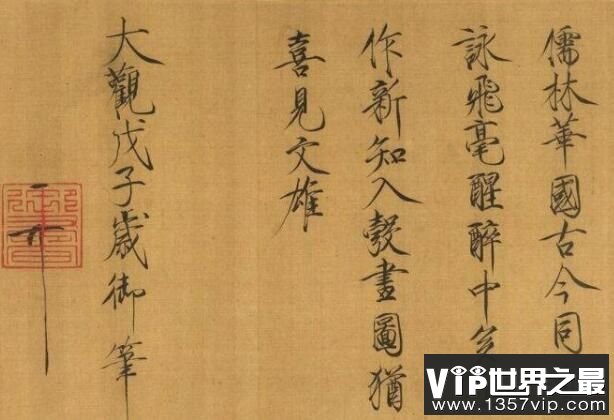 儒林華國古今同
詠飛毫醒醉中多
作新知入彀畫圖猶
喜見文雄
大觀戊子歲御筆
御書
VIP世界之最
www.1357vip.com